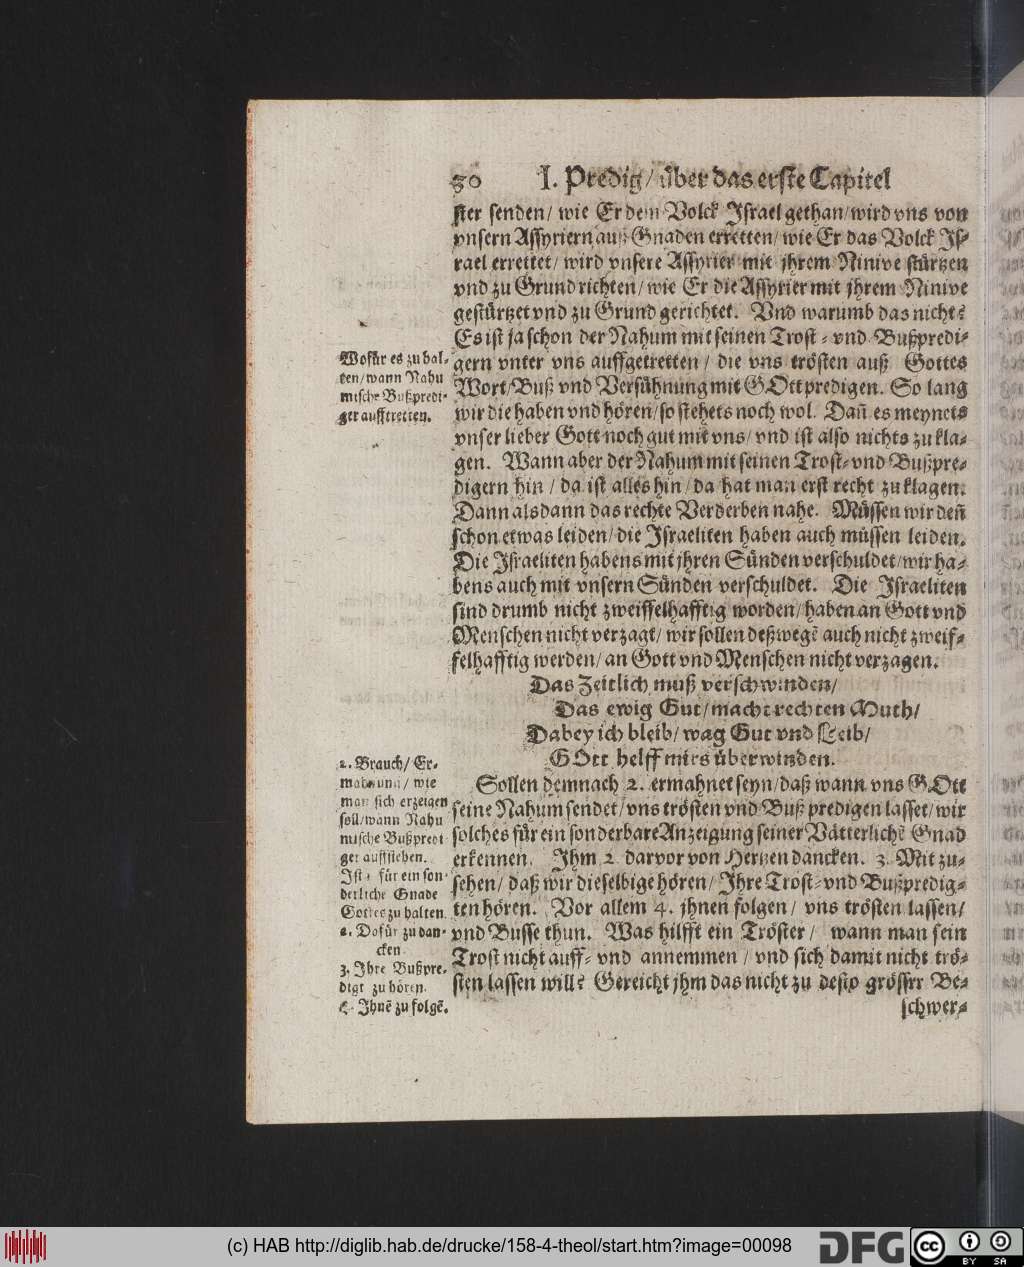 30 I. Predig/ über das erste Capitel
ster senden/ wie Er dem Volck Israel gethan/ wird vns von
vnsern Assyriern auß Gnaden erretten/ wie Er das Volck Is-
rael errettet/ wird vnsere Assyrier mit jhrem Ninive stürtzen
vnd zu Grund richten/ wie Er die Assyrier mit jhrem Ninive
gestürtzet vnd zu Grund gerichtet. Vnd warumb das nicht?
Es ist ja schon der Nahum mit seinen Trost- vnd Bußpredi-
gern vnter vns auffgetretten/ die vns trösten auß Gottes
Wort/ Buß vnd Versühnung mit GOtt predigen. So lang
wir die haben vnd hören/ so stehets noch wol. Dañ es meynets
vnser lieber Gott noch gut mit vns/ vnd ist also nichts zu kla-
gen. Wann aber der Nahum mit seinen Trost- vnd Bußpre-
digern hin/ da ist alles hin/ da hat man erst recht zu klagen.
Dann alsdann das rechte Verderben nahe. Müssen wir deñ
schon etwas leiden/ die Israeliten haben auch müssen leiden.
Die Israeliten habens mit jhren Sünden verschuldet/ wir ha-
bens auch mit vnsern Sünden verschuldet. Die Israeliten
sind drumb nicht zweiffelhafftig worden/ haben an Gott vnd
Menschen nicht verzagt/ wir sollen deßwegẽ auch nicht zweif-
felhafftig werden/ an Gott vnd Menschen nicht verzagen.
Das Zeitlich muß verschwinden/
Das ewig Gut/ macht rechten Muth/
Dabey ich bleib/ wag Gut vnd Leib/
GOtt helff mirs überwinden.
Sollen demnach 2. ermahnet seyn/ daß wann vns GOtt
seine Nahum sendet/ vns trösten vnd Buß predigen lasset/ wir
solches für ein sonderbare Anzeigung seiner Vätterlichẽ Gnad
erkennen. Ihm 2. darvor von Hertzen dancken. 3. Mit zu-
sehen/ daß wir dieselbige hören/ Ihre Trost- vnd Bußpredig-
ten hören. Vor allem 4. jhnen folgen/ vns trösten lassen/
vnd Busse thun. Was hilfft ein Tröster/ wann man sein
Trost nicht auff- vnd annemmen/ vnd sich damit nicht trö-
sten lassen will? Gereicht jhm das nicht zu desto grösser Be-
schwer-
Wofür es zu hal-
ten/ wann Nahu
mische Bußpredi-
ger aufftretten.
2. Brauch/ Er-
mahnung/ wie
man sich erzeigen
soll/ wann Nahu
mische Bußpredi
ger auffstehen.
Ist 1. für ein son-
derliche Gnade
Gottes zu halten.
2. Dafür zu dan-
cken.
3. Ihre Bußpre-
digt zu hören.
4. Ihnẽ zu folgẽ.
(c) HAB http://diglib.hab.de/drucke/158-4-theol/start.htm?image=00098
DFG
cc
BY SA